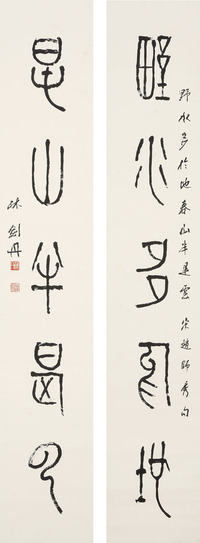 野水多於地春山半是雲 宋趙師秀句
野水多於地
春山半是雲
林劍丹